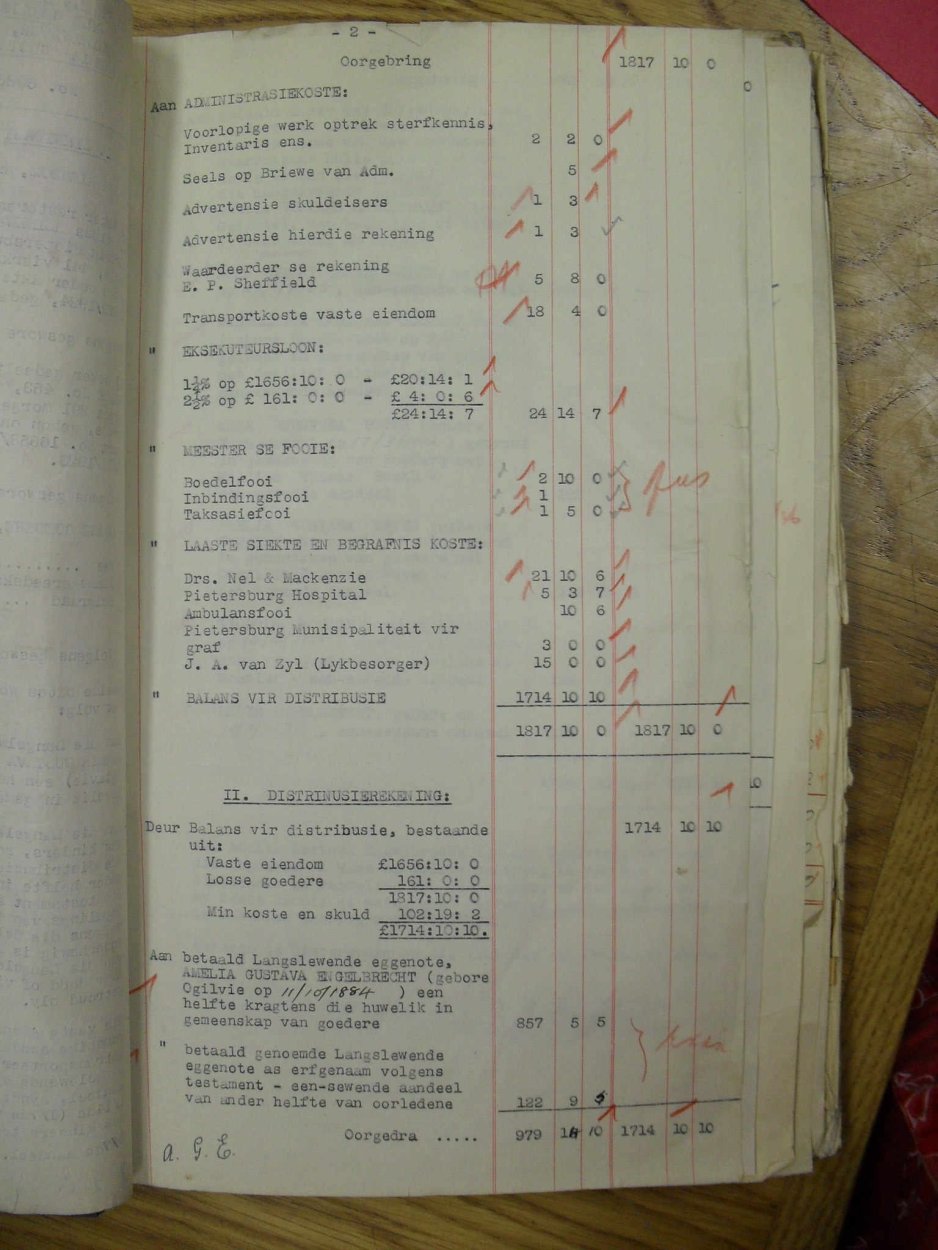 - 2 -
Oorgebring 1817 10 0
Aan ADMINISTRASIEKOSTE:
Voorlopige werk optrek sterfkennis,
Inventaris ens. 2 2 0
Seels op Briewe van Adm. 5
Advertensie skuldeisers 1 3
Advertensie hierdie rekening 1 3
Waardeerder se rekening
E. P. Sheffield 5 8 0
Transportkoste vaste eiendom 18 4 0
" EKSEKUTEURSLOON:
1¼% op £1656:10: 0 - £20:14: 1
2½% op £ 161: 0: 0 - £ 4: 0: 6
£24:14: 7 24 14 7
" MEESTER SE FOOIE:
Boedelfooi 2 10 0
Inbindingsfooi 1
Taksasiefooi 1 5 0
" LAASTE SIEKTE EN BEGRAFNIS KOSTE:
Drs. Nel & Mackenzie 21 10 6
Pietersburg Hospital 5 3 7
Ambulansfooi 10 6
Pietersburg Munisipaliteit vir
graf 3 0 0
J. A. van Zyl (Lykbesorger) 15 0 0
" BALANS VIR DISTRIBUSIE 1714 10 10
1817 10 0 1817 10 0
II. DISTRINUSIEREKENING:
Deur Balans vir distribusie, bestaande 1714 10 10
uit:
Vaste eiendom £1656:10: 0
Losse goedere 161: 0: 0
1817:10: 0
Min koste en skuld 102:19: 2
£1714:10:10.
Aan betaald Langslewende eggenote,
AMELIA GUSTAVA ENGELBRECHT (gebore
Ogilvie op 11/10/1884 ) een
helfte kragtens die huwelik in
gemeenskap van goedere 857 5 5
" betaald genoemde Langslewende
eggenote as erfgenaam volgens
testament - een-sewende aandeel
van ander helfte van oorledene 122 9 5
Oorgedra ..... 979 14 10 1714 10 10
A. G. E.